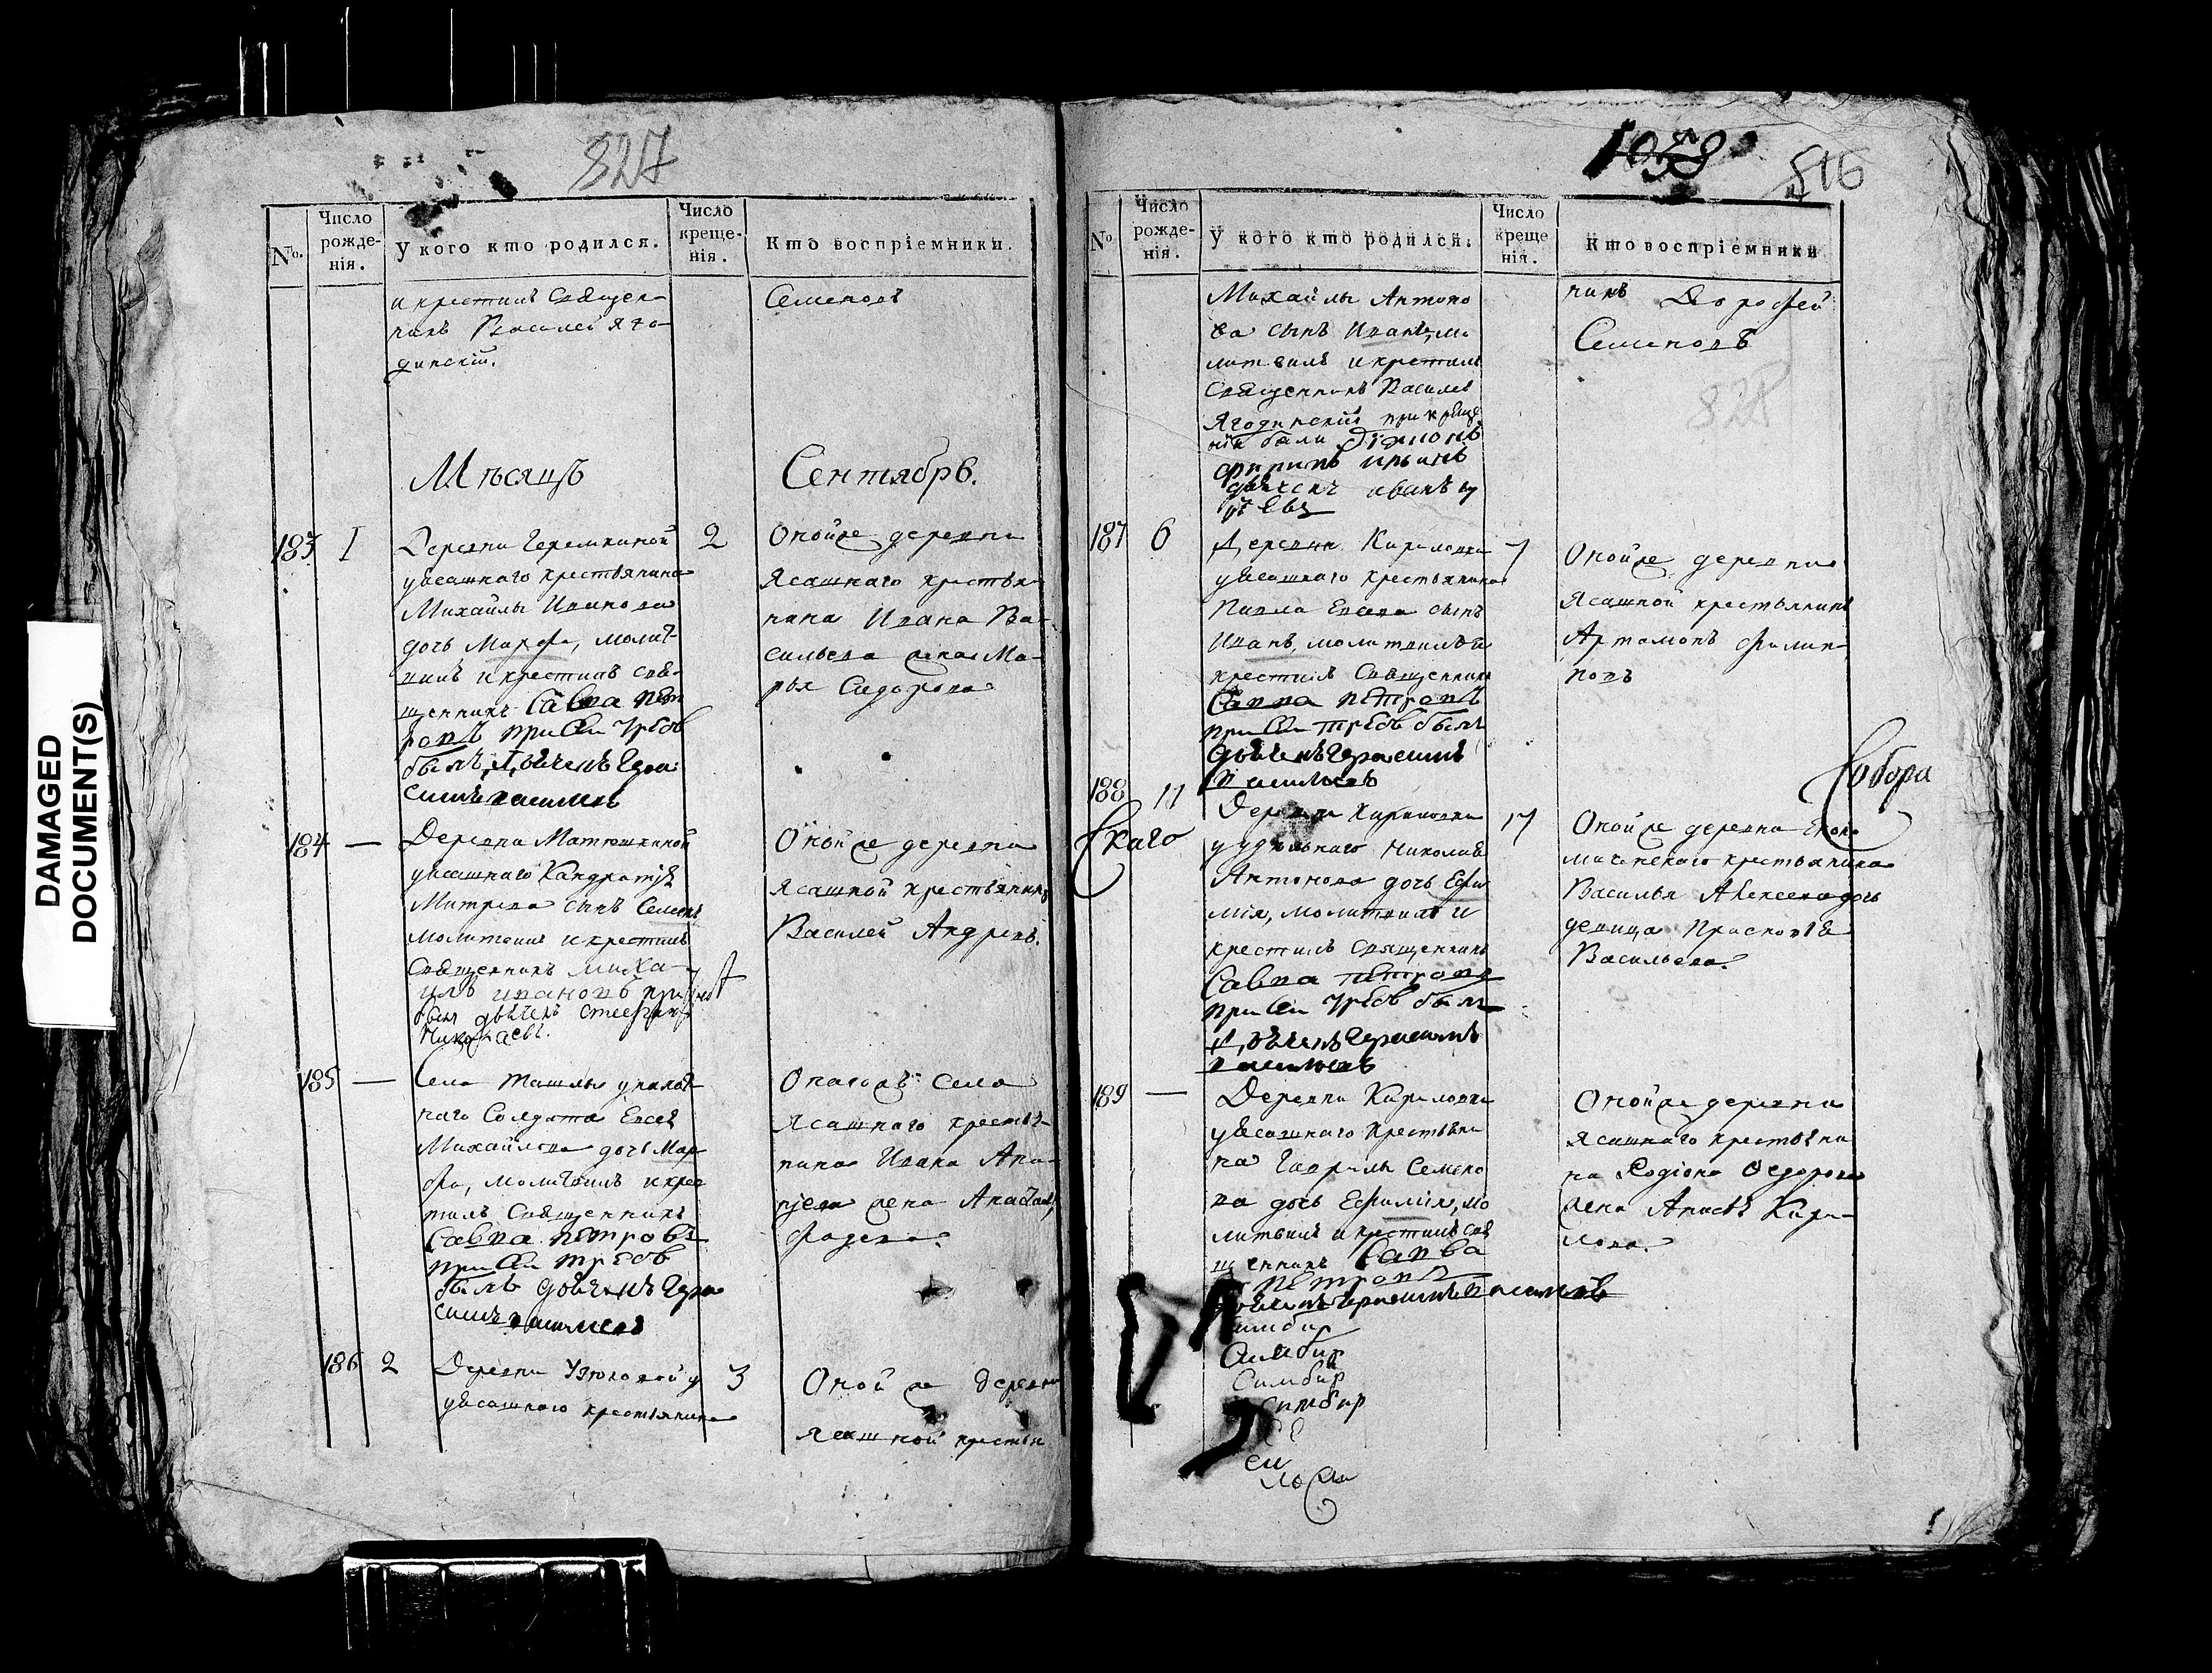 DAMAGED
DOCUMENT(S)
327
№.
Число рожде-нія.
У кого кто родился.
Число креще-нія.
Кто воспріемники.
и крестилъ Священ-
никъ Василей Яго-
динскій.
Семеновъ
Мѣсяцъ
Сентябрь.
183
1
Деревни Черемкиной
уясашнаго крестьянина
Михайлы Иванова
дочь Марфа, молит-
вилъ и крестилъ свя-
щенникъ Савва Пет
ровъ при сей требѣ
былъ дьячекъ Гера
симъ Васильевъ
2
Оной же деревни
Ясашнаго крестья-
нина Ивана Ва-
сильева жена Ма-
рья Сидорова
184
—
Деревни Матюшкиной
уясашнаго Кандратья
Митрева сынъ Семенъ
молитвилъ и крестилъ
Священникъ Миха-
илъ Ивановъ при
был дьячекъ Стефанъ
Николаевъ.
Оной же деревни
Ясашной крестьянинъ
Василей Андревъ.
185
—
Села Ташлы у
наго Солдата Евсея
Михайлова дочь Мар
фа, молитвилъ и крес
тилъ Священникъ
Савва Петровъ
при сей требѣ
былъ дьячекъ Гера
симъ Васильевъ
Онагожъ Села
Ясашнаго крестья-
нина Ивана Ана-
ньева жена
Фадева.
186
2
Деревни Узюковой
уясашнаго крестьянина
3
Оной же деревни
Ясашной крестья
1058
516
№
Число рожде-нія.
У кого кто родился.
Число креще нія.
Кто воспріемники
Михайлы Антоно
ва сынъ Иванъ, мо
литвилъ и крестилъ
Священникъ Василей
Ягодинский при креще
нiи были Дiяконъ
Ильинъ
дьячекъ Иванъ
нинъ Дорофей
Семеновъ
328
187
6
Деревни Кириловки
уясашнаго крестьянина
Павла Евсева сынъ
Иванъ, молитвилъ и
крестилъ Священникъ
Савва Петровъ
при сей требѣ былъ
дьячекъ Герасимъ
Васильевъ
7
Оной же деревни
Ясашной крестьянинъ
Артамонъ Филип-
повъ
Собора
188
11
скаго
Деревни Кириловки
у удѣльнаго Николая
Антонова дочь Ефи
мiя, молитвилъ и
крестилъ Священникъ
Савва Петровъ
при сей требѣ былъ
дьячекъ Герасимъ
Васильевъ
17
Оной же деревни Еконо
миченскаго крестьянина
Василья Алексеева дочь
девица Прасковья
Васильева.
189
—
Деревни Кириловки
уясашнаго крестьяни
на Гаврилы Семено
ва дочь Ефимiя, мо
литвилъ и крестилъ свя
щенникъ Савва
Петровъ
дьячекъ Герасимъ Васильевъ
Оной же деревни
Ясашнаго крестьяни
на Родiона Федорова
жена Анисья Кири-
лова.
Симбир
Симбир
Симбир
Симбир
се
си